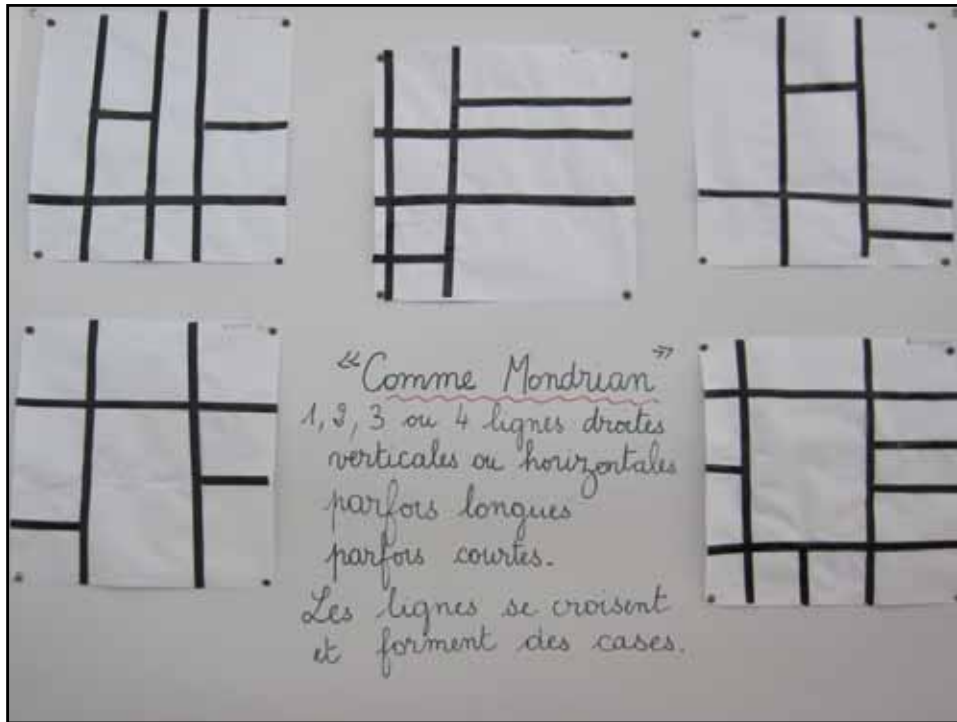 « Comme Mondrian »
1, 2, 3 ou 4 lignes droites
verticales ou horizontales
parfois longues
parfois courtes.
Les lignes se croisent
et forment des cases.